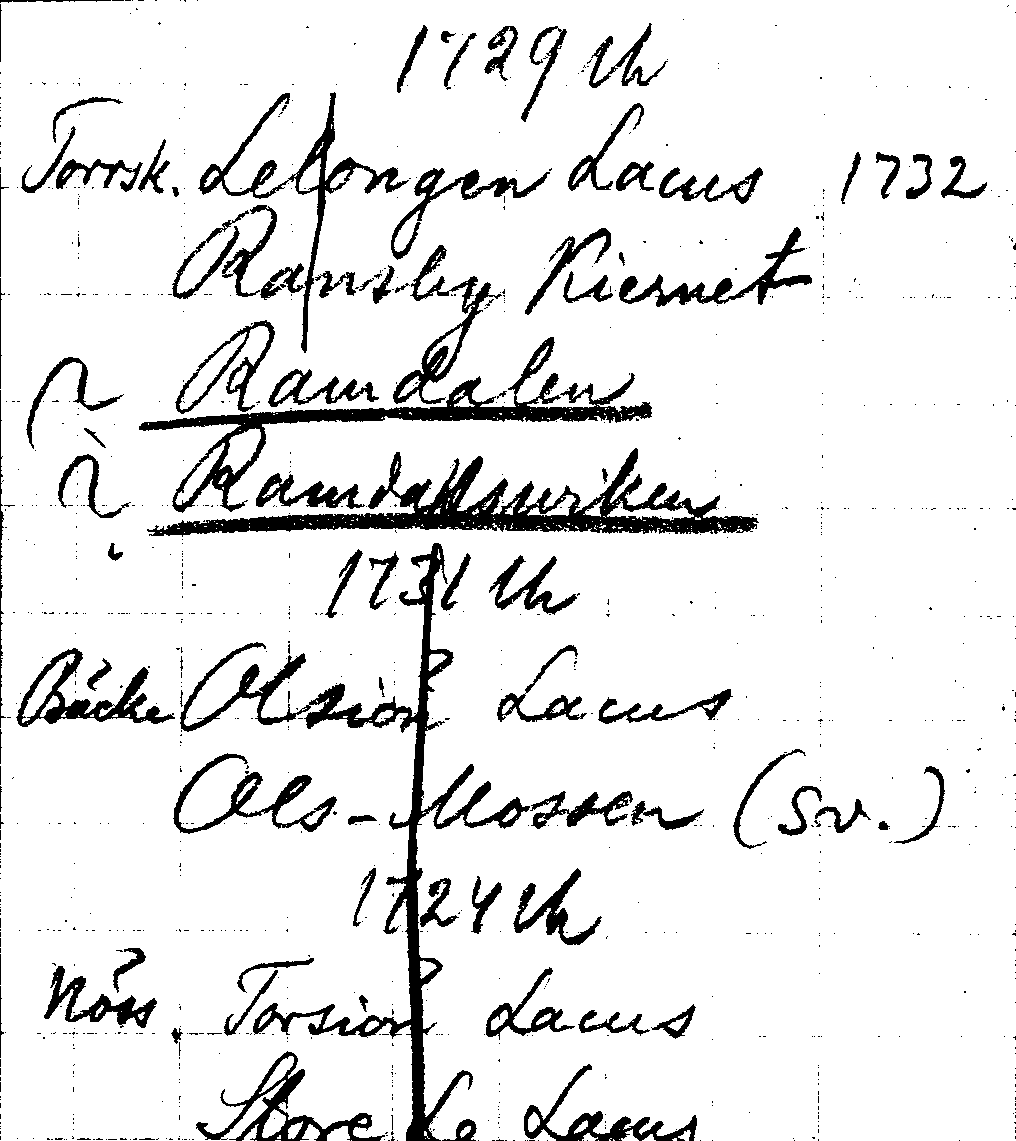 1729 Uh
Torrsk. Lelongen Lacus 1732
Ransby Kiernet
Ramdalen
Ramdahlswiken
1731 Uh
Bäcke Olsiön Lacus
Ols-Mossen (Sv.)
1724 Uh
Nöss. Torsiön Lacus
Store Le Lacus